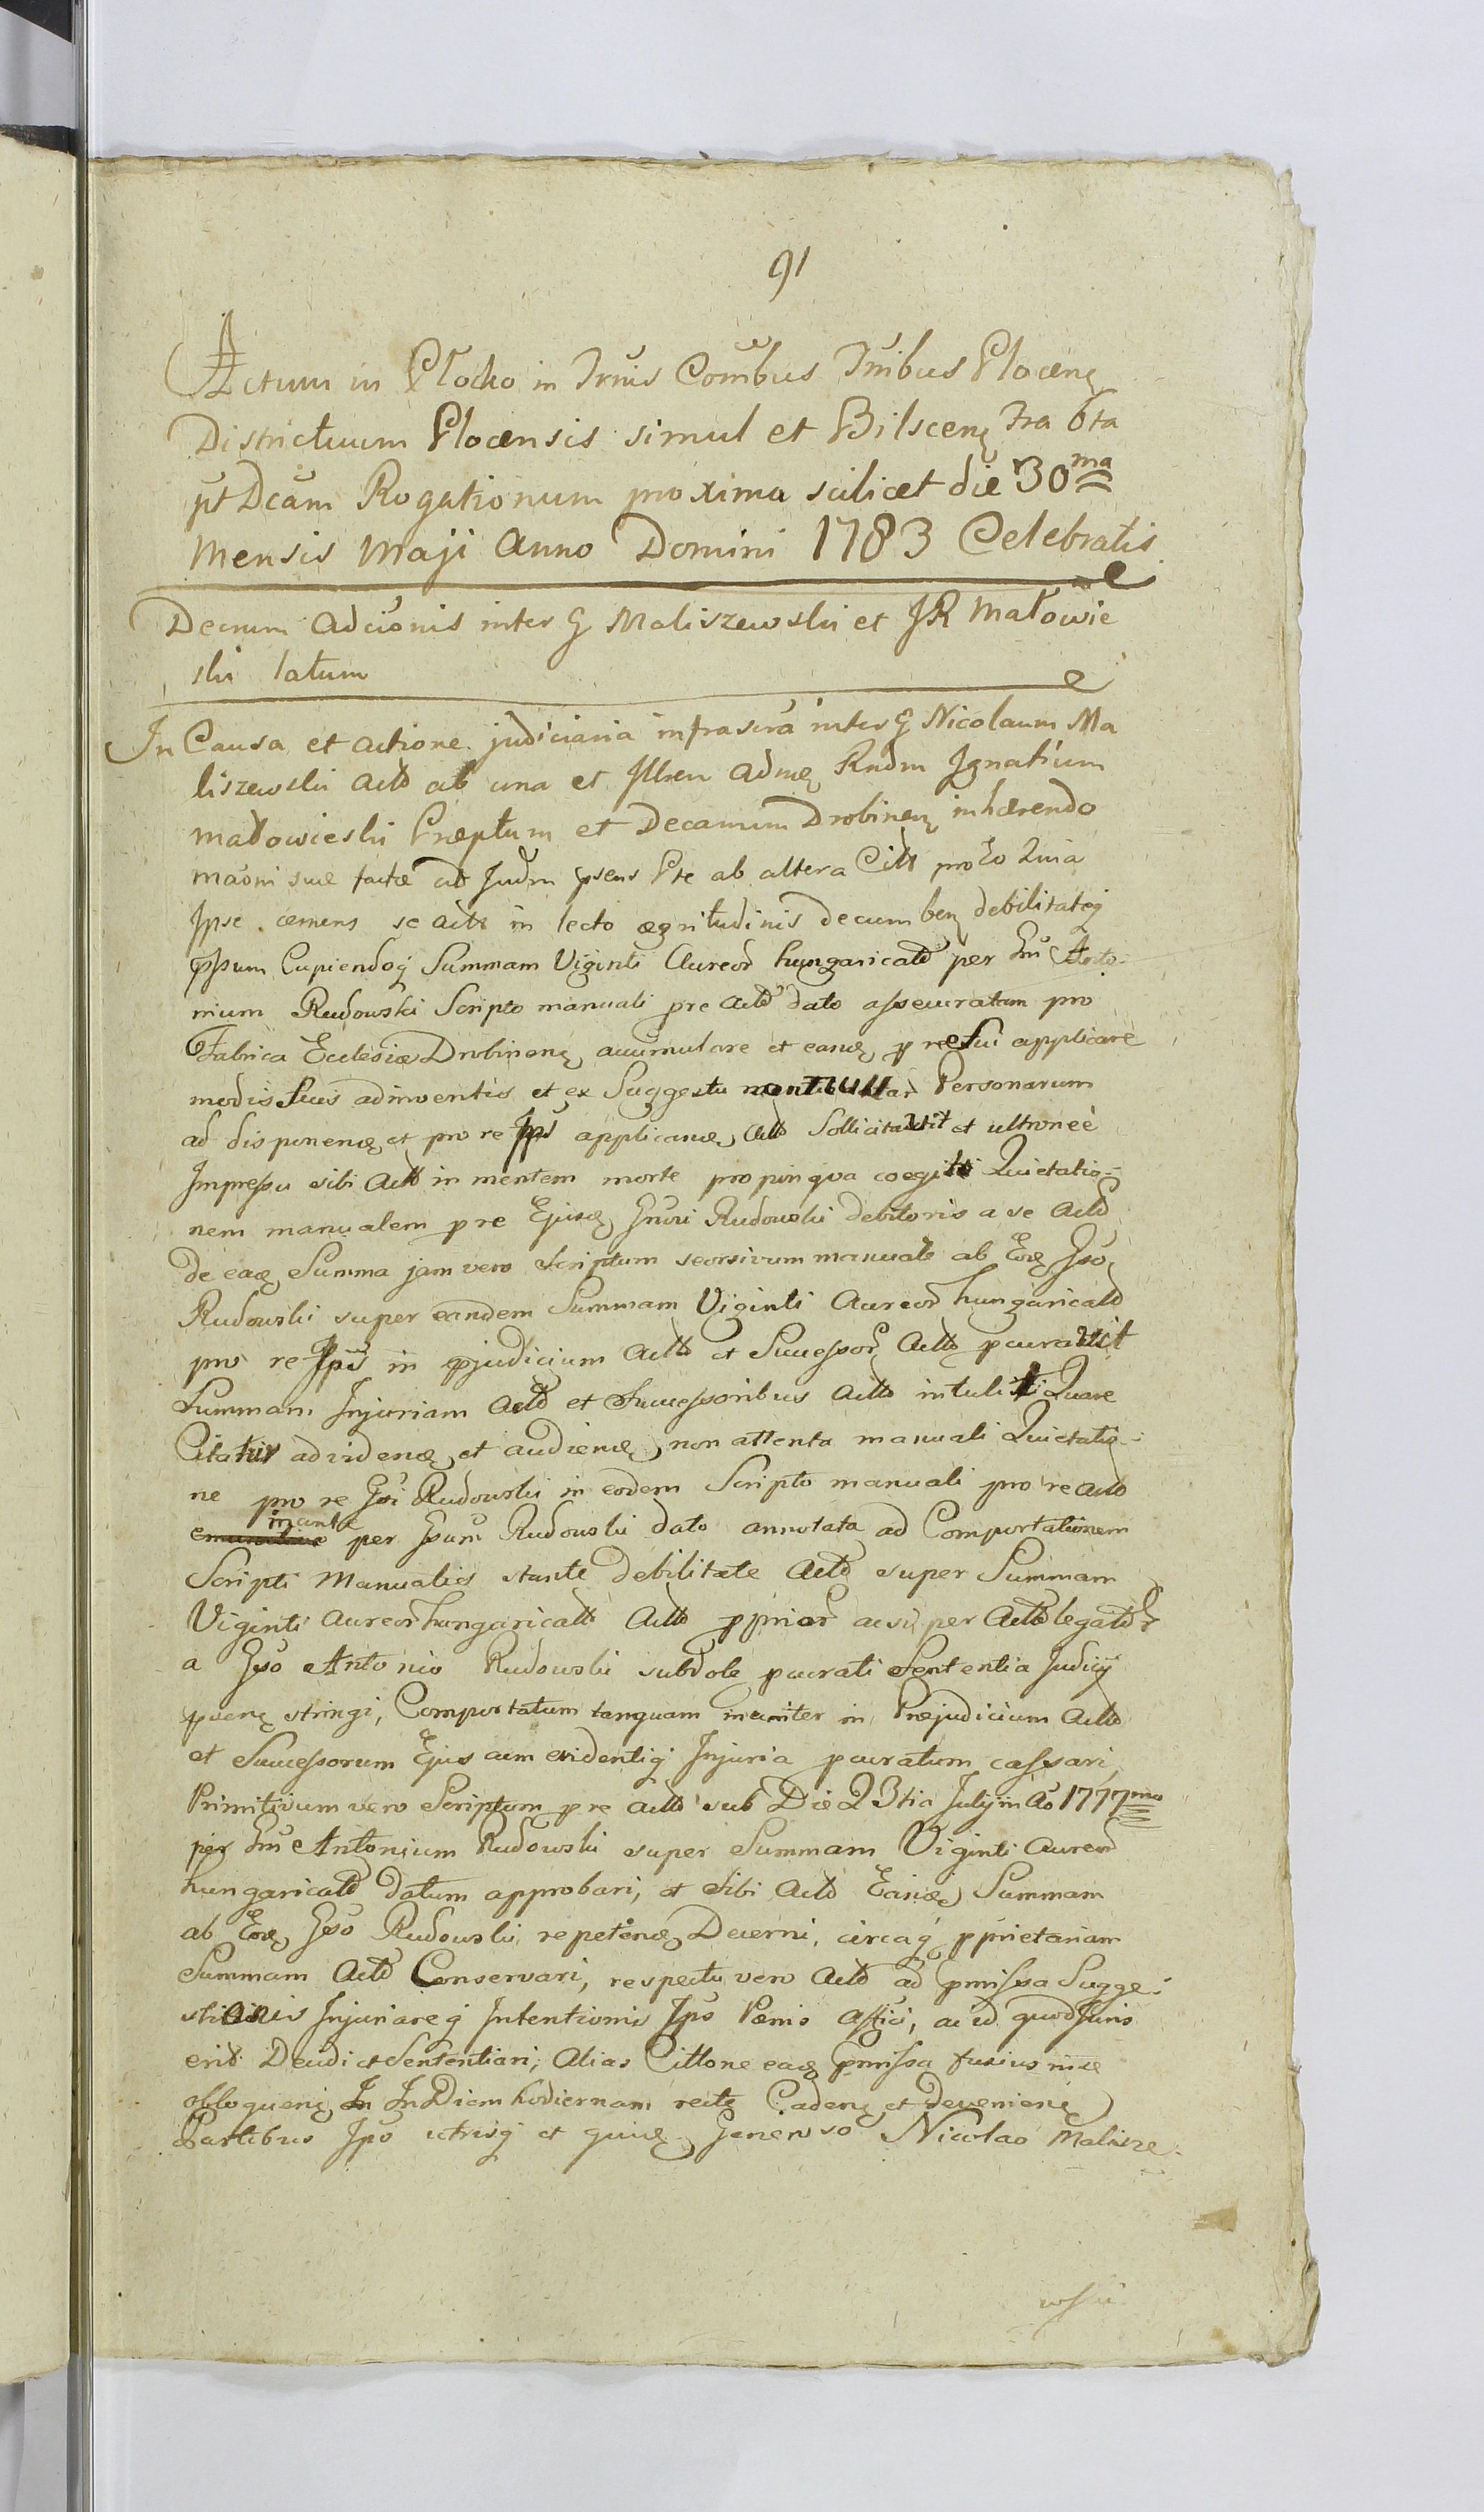 91
Actum in Płocko in Trnis Combus Tmibus Plocen
Districtuum Plocensis simul et Bilscen Fra 6ta
pt Dcam Rogationum proxima scilicet die 30ma
Mensis Maji Anno Domini 1783 Celebratis
Decrum adcionis inter G Maliszewski et JR Małowie
ski latum
In Causa et actione judiciaria infrascra inter G Nicolaum Ma
liszewski Actt ab una et Illrem Admm Rndm Ignatium
Małowieski Praeptum et Decanum Drobinen inhærendo
maoni suæ factæ ad Judm psens Pte ab altera Citt pro Eo Quia
Ipse cernens se actt in lecto ægritudinis decumben debilitateq
ppsum Cupiendoq Summam Viginti Aureor hungaricalt per Gm Anto
nium Rudowski Scripto manuali pre Actt dato assecuratam pro
Fabrica Ecclesiæ Drobinens accumulare et eand p re Sui applicare
modis suis adinventis et ex Suggestu Personarum
ad disponend et pro re Ipsi applicand Actt Sollicitavit et ultroneè
Impressu sibi Actt in mentem morte propinqva coegit Quietatio-
nem manualem p re Ejusd Gnrsi Rudowski debitoris a se Actt
de ead Summa jam vero Scriptum seorsivum manuale ab Eod Gso
Rudowski super eandem Summam Viginti Aureor hungaricalt
pro re Ipsi in pjudicium Actt et Successor Actt pcuravit
Summam Injuriam Actt et Successoribus Actt intulit Quare
Citatur ad vidend et audiend non attenta manuali Quietatio-
ne pro re Gsi Rudowski in eodem Scripto manuali pro re Actt
inante
per Gsum Rudowski dato annotata ad Comportationem
Scripti Manualis stante debilitate Actt super Summam
Viginti aureor hungaricalt Actt pprior ac super Actt legator
a Gso Antonio Rudowski subdole pcurati Sententia Judicij
pven stringi, Comportatum tanquam inaniter in Præjudicium Actt
et Successorum Ejus cum evidentiq Injuria pcuratum cassari,
Primitivum vero Scriptum p re Actt sub Die 23tia Julij in Ao 1777mo
per Gm Antonium Rudowski super Summam Viginti Aureor
hungaricalt datum approbari, et Sibi Actt Eand Summam
ab Eod Gso Rudowski repetend Decerni, circaq pprietariam
Summam Actt Conservari, respectu vero Actt ad pmissa Sugge-
stionis Injuriareq Intentionis Ipso Poenis affici, ac id quod Juris
erit Decidi et Sententiari, Alias Cittone ead pmissa fusius in se
obloquen In Diem hodiernam recte Caden et devenien
Partibus Ipso utrisq et quid Generoso Nicolao Malisze-
wski